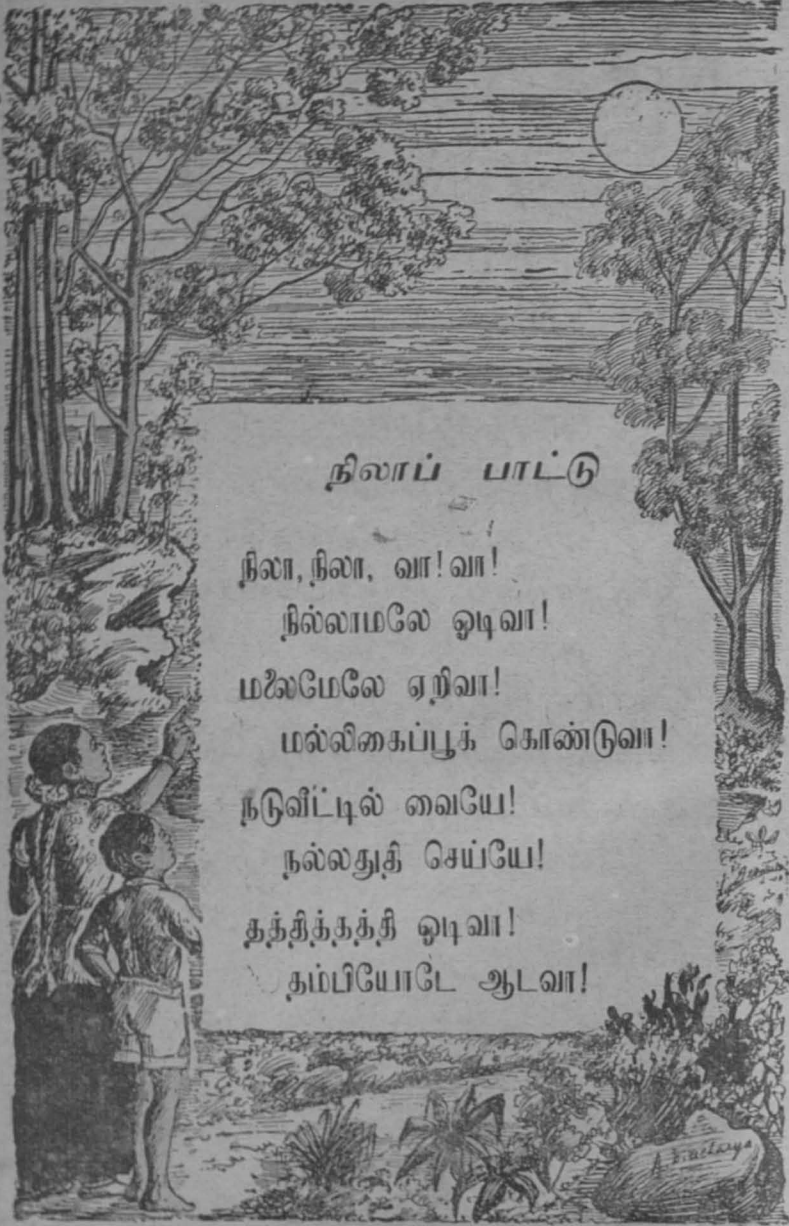 நிலாப் பாட்டு
நிலா, நிலா, வா! வா!
நில்லாமலே ஓடிவா!
மலைமேலே ஏறிவா!
மல்லிகைப்பூக் கொண்டுவா!
நடுவீட்டில் வையே!
நல்லதுதி செய்யே!
தத்தித்தத்தி ஓடிவா!
தம்பியோடே ஆடவா!